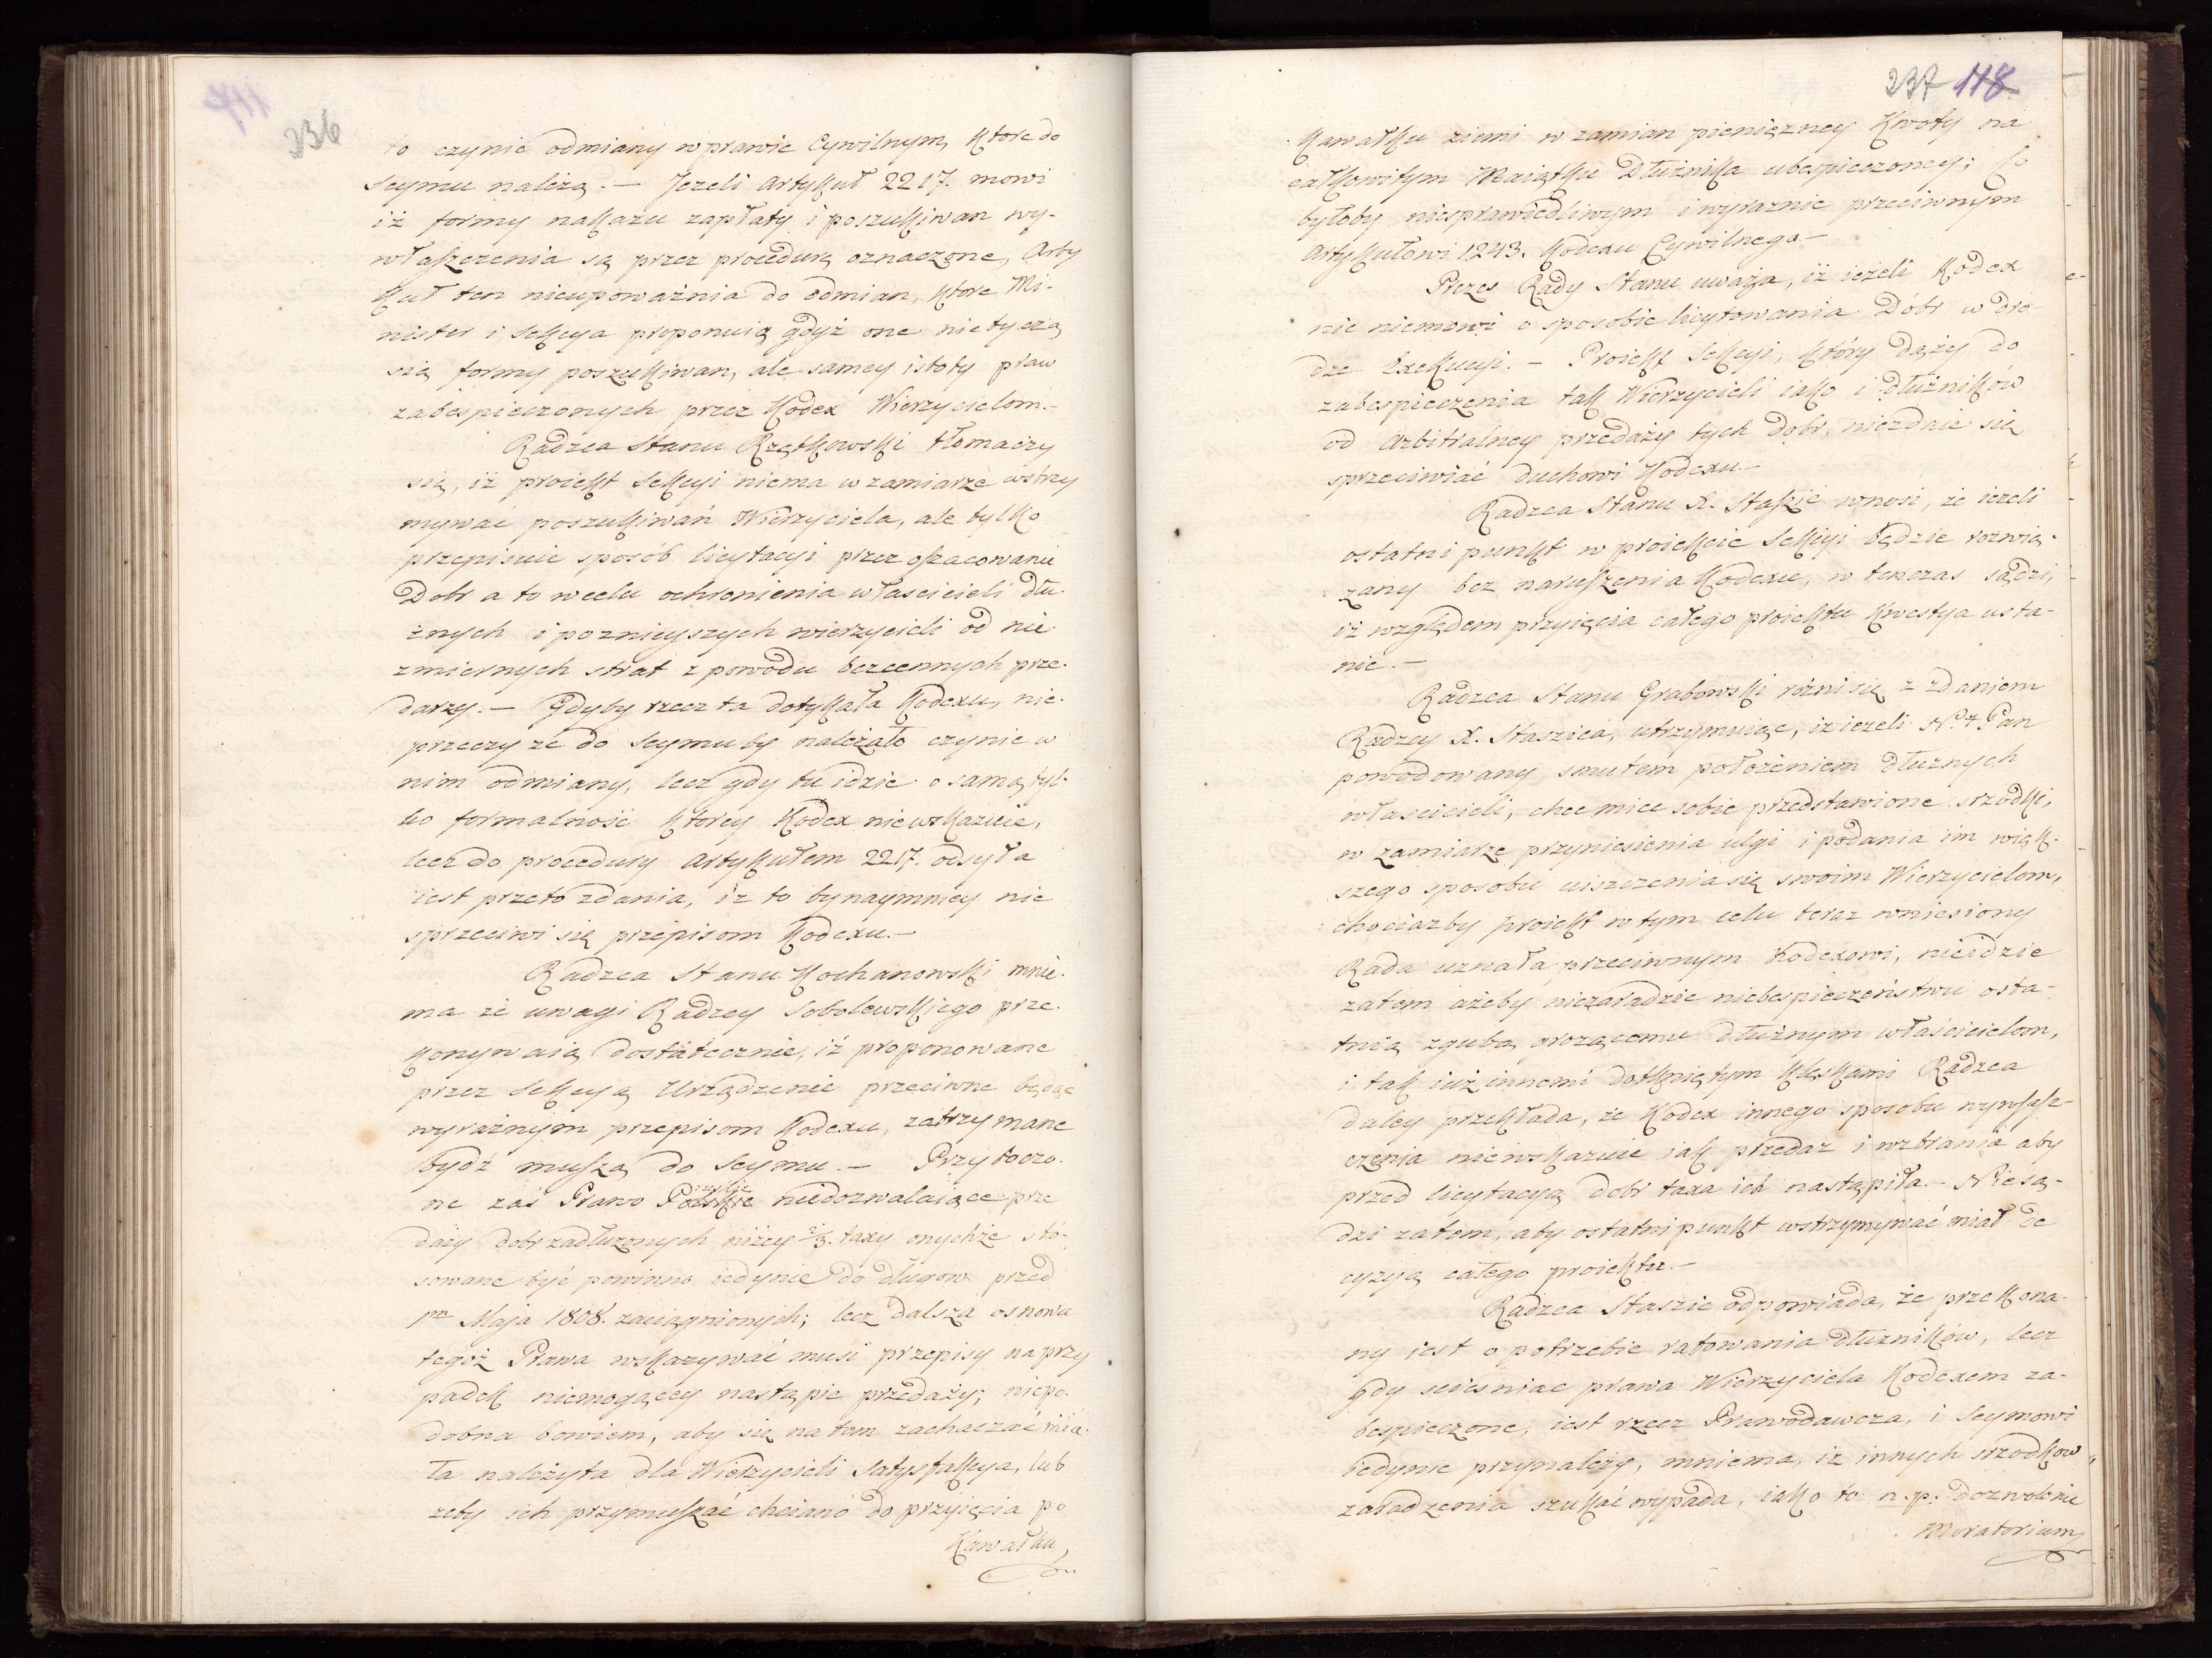 236
to czynić odmiany w prawie Cywilnym, które do
Seymu należą. — Jeżeli Artykuł 2217. mowi
iż formy nakazu zapłaty i poszukiwan wy-
właszczenia są przez procedurę oznaczone, Arty
kuł ten nieupoważnia do odmian, które Mi-
nister i Sekcya proponuią gdyż one nietyczą
się formy poszukiwan, ale samey istoty praw
zabespieczonych przez Kodex Wierzycielom.-
Radzca Stanu Rzętkowski tłomaczy
się, iż proiekt Sekcyi niema w zamiarze wstrzy
mywać poszukiwań Wierzyciela, ale tylko
przepisuie sposób licytacyi przez oszacowanie
Dobr a to w celu ochronienia właścicieli dłu-
żnych i poznieyszych wierzycieli od nie
zmiernych strat z powodu bezcennych prze-
darzy. — Gdyby rzecz ta dotykała Kodexu, nie-
przeczy że do Seymu by należało czynic w
nim odmiany, lecz gdy tu idzie o samą tyl-
ko formalność którey Kodex niewskazuie,
lecz do procedury Artykułem 2217. odsyła
iest przeto zdania, iż to bynaymniey nie
sprzeciwi się przepisom Kodexu. —
Radzca Stanu Kochanowski mnie-
ma że uwagi Radzcy Sobolewskiego prze-
konywaią dostatecznie, iż proponowane
przez Sekcyą Urządzenie przeciwne będąc
wyraźnym przepisom Kodexu, zatrzymane
bydź muszą do Seymu. — Przytoczo-
ne zaś Prawo Polskie niedozwalaiące prze
daży dobr zadłużonych niżey 2/3. taxy onychże stó-
sowane być powinno iedynie do długow przed
1m Maja 1808. zaciągnionych; lecz dalsza osnowa
tegoż Prawa wskazywać musi przepisy na przy
padek niemogącey nastąpic przedaży; niepo-
dobna bowiem, aby się na tem zachaczać mia-
ła należyta dla Wierzycieli Satysfakcya, lub
żeby ich przymuszać chciano do przyięcia po
Kawałku
237 118
Kawałku ziemi w zamian pieniężney Kwoty na
całkowitym Maiątku Dłużnika ubespieczoney; Co
byłoby niesprawiedliwym i wyraznie przeciwnym
Artykułowi 1243. Kodexu Cywilnego —
Prezes Rady Stanu uważa, iż ieżeli Kodex
nic niemowi o sposobie licytowania Dóbr w dro-
dze Exekucyi. — Proiekt Sekcyi, który dąży do
zabespieczenia tak Wierzycieli iako i dłużników
od Arbitralney przedaży tych dobr, niezdaie się
sprzeciwiać duchowi Kodexu —
Radzca Stanu X. Staszic wnosi, że ieżeli
ostatni punkt w proiekcie Sekcyi będzie rozwią-
zany bez naruszenia Kodexu, w tenczas sądzi,
iż względem przyięcia całego proiektu kwestya usta-
nie. —
Radzca Stanu Grabowski rózni się z zdaniem
Radzcy X. Staszica, utrzymuiąc, iż ieżeli N. Pan
powodowany smutem położeniem dłużnych
właścicieli, chce miec sobie przedstawione srzodki,
w zamiarze przyniesienia ulgi i podania im więk-
szego sposobu uiszczenia się swoim Wierzycielom,
chociażby proiekt w tym celu teraz wniesiony
Rada uznała przeciwnym Kodexowi, nieidzie
zatem ażeby niezaradzic niebespieczeństwu osta-
tnią zgubą grożącemu dłużnym właścicielom,
i tak iuż innemi dotkniętym klęskami Radzca
daley przekłada, że Kodex innego sposobu wywłasz-
czenia niewskazuie iak przedaz i wzbrania aby
przed licytacyą dobr taxa ich nastąpiła. — Nie są-
dzi zatem, aby ostatni punkt wstrzymywać miał de
cyzyą całego proiektu. —
Radzca Staszic odpowiada, że przekona-
ny iest o potrzebie ratowania dłużników, lecz
gdy ściesniac prawa Wierzyciela Kodexem za-
bespieczone, iest rzecz Prawodawcza, i Seymowi
iedynie przynależy, mniema, iż innych srzodkow
zaradzenia szukać wypada, iako to n.p. dozwolenie
Moratorium